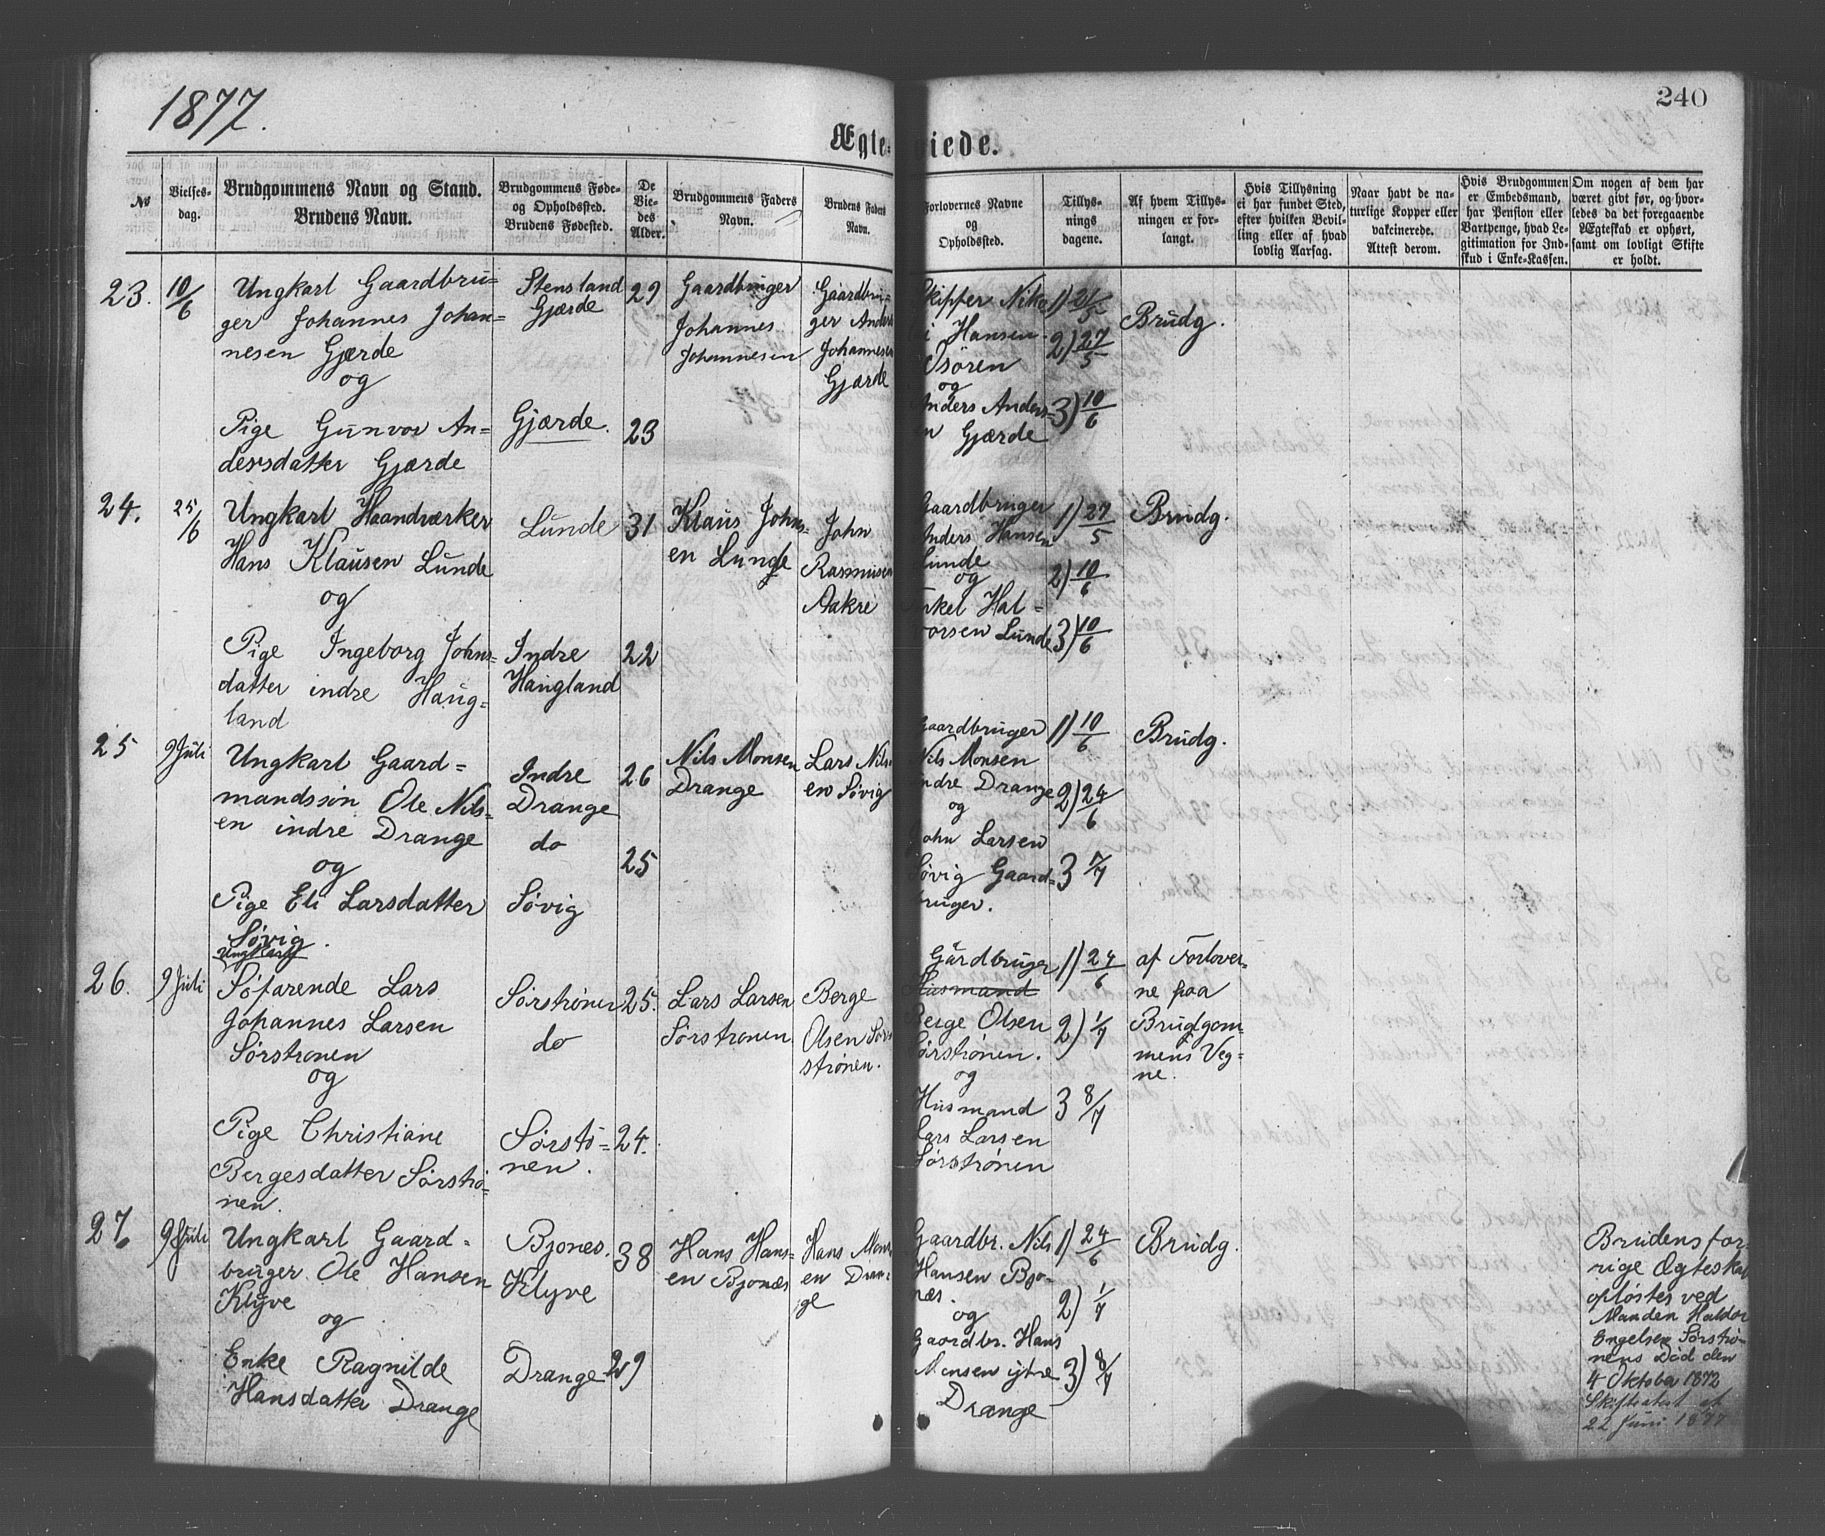 1877.
240
Ægteviede.
№
Vielsesdag.
Brudgommens Navn og Stand.
Brudens Navn.
Brudgommens Føde-
og Opholdssted.
Brudens Fødested.
De
Vie-
des
Alder.
Brudgommens Faders
Navn.
Brudens Faders
Navn.
Forlovernes Navne
og
Opholdssted.
Tillys-
nings
dagene.
Af hvem Tillys-
ningen er for-
langt.
Hvis Tillysning
ei har fundet Sted,
efter hvilken Bevil-
ling eller af hvad
lovlig Aarsag.
Naar havt de na-
turlige Kopper eller
vakcinerede.
Attest derom.
Hvis Brudgommen
er Embedsmand,
har Pension eller
Vartpenge, hvad Le-
gitimation for Ind-
skud i Enke-Kassen.
Om nogen af dem har
været givt før, og hvor-
ledes da det foregaaende
Ægteskab er ophørt,
samt om lovligt Skifte
er holdt.
23. 10/6
Ungkarl Gaardbru-
ger Johannes Johan-
nesen Gjærde
og
Pige Gunvor An-
dersdatter Gjærde
Stensland
Gjærde
Gjærde.
29
23
Gaardbruger
Johannes
Johannesen
Gaardbru-
ger Anders
Johannesen
Gjærde
Skipper Niko
i Hansen
Isören
og
Anders Anders-
en Gjærde
1) 21/5
2) 27/5
3) 10/6
Brudg.
24. 25/6
Ungkarl Haandværker
Hans Klausen Lunde
og
Pige Ingeborg Johns-
datter indre Haug-
land
Lunde
Indre
Haugland
31
22
Klaus Johns-
en Lunde
John
Rasmusen
Aakre
Gaardbruger
Anders Hansen
Lunde
og
Hal-
vorsen Lunde
1) 27/5
2) 10/6
3) 10/6
Brudg.
25 9 Juli
Ungkarl Gaard-
mandssøn Ole Nils-
en indre Drange
og
Pige Eli Larsdatter
Søvig.
Indre
Drange
do
Søvig
26
25
Nils Monsen
Drange
Lars Nils-
en Søvig
Gaardbruger
Nils Monsen
indre Drange
og
John Larsen
Søvig Gaard-
bruger.
1) 10/6
2) 24/6
3 7/7
Brudg.
26. 9 Juli
Ungkarl
Søfarende Lars
Johannes Larsen
Sørstrønen
og
Pige Christiane
Bergesdatter Sørstrø-
nen.
Sørstrønen
do
Sørstrø-
nen.
25.
24.
Lars Larsen
Sørstrønen
Berge
Olsen Sør-
strønen.
Gårdbruger
Husmand
Berge Olsen
Sørstrønen.
og
Husmand
Lars Larsen
Sørstrønen
1) 24/6
2) 1/7
3 8/7
af Forlover-
ne paa
Brudgom-
mens Veg-
ne.
27. 9 Juli
Ungkarl Gaard-
bruger Ole Hansen
Klyve
og
Enke Ragnilde
Hansdatter Drange
Bjones.
Klyve
Drange
38
29
Hans Hans-
en Bjonæs
Hans Mons-
en Dran-
ge
Gaardbr. Nils
Hansen Bjo-
næs.
og
Gaardbr. Hans
Monsen ytre
Drange
1) 24/6
2) 1/7
3) 8/7
Brudg.
Brudens for-
rige Ægteskab
opløstes ved
Manden Haldor
Engelsen Sørstrø-
nens Død den
4 Oktober 1872
Skifteatest af
22 Juni 1877